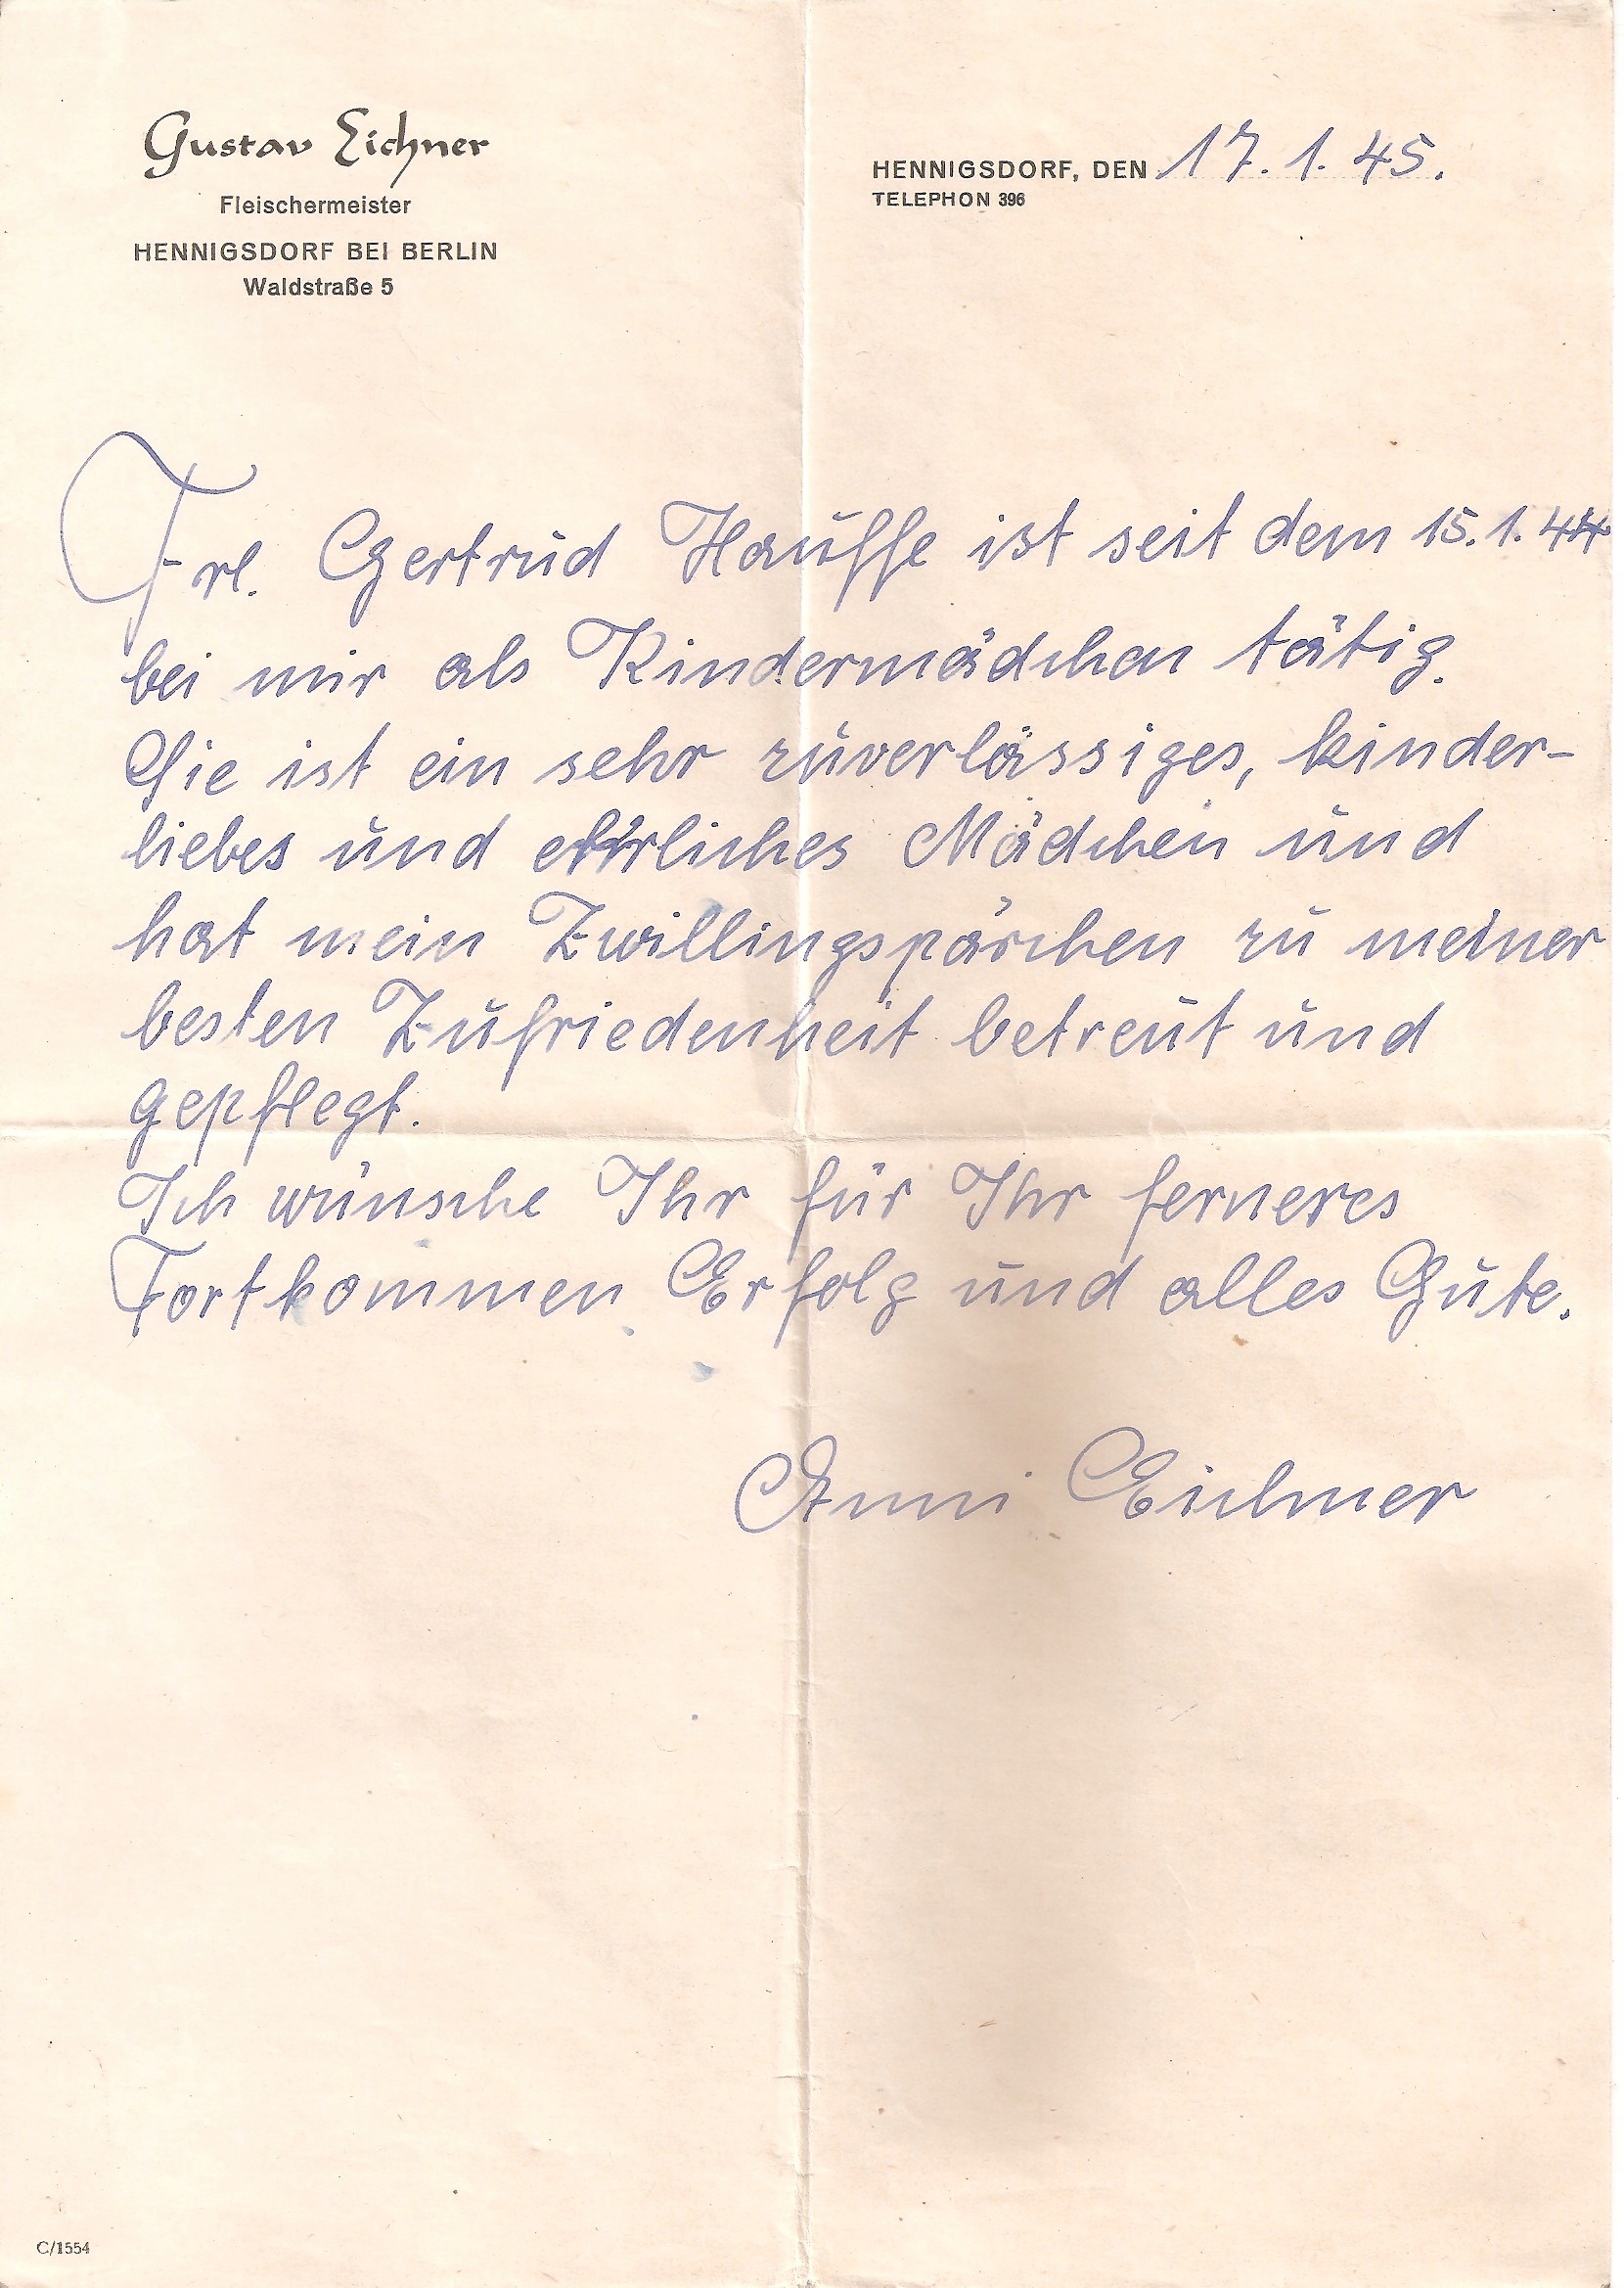 Gustav Eichner
Fleischermeister
HENNIGSDORF BEI BERLIN
Waldstraße 5
HENNIGSDORF, DEN 17. 1. 45.
TELEPHON 396
Frl. Gertrud Hauffe ist seit dem 15. 1. 44
bei mir als Kindermädchen tätig.
Sie ist ein sehr zuverlässiges, kinder-
liebes und ehrliches Mädchen und
hat mein Zwillingspärchen zu meiner
besten Zufriedenheit betreut und
gepflegt.
Ich wünsche Ihr für Ihr ferneres
Fortkommen Erfolg und alles Gute.
Anni Eichner
C/1554